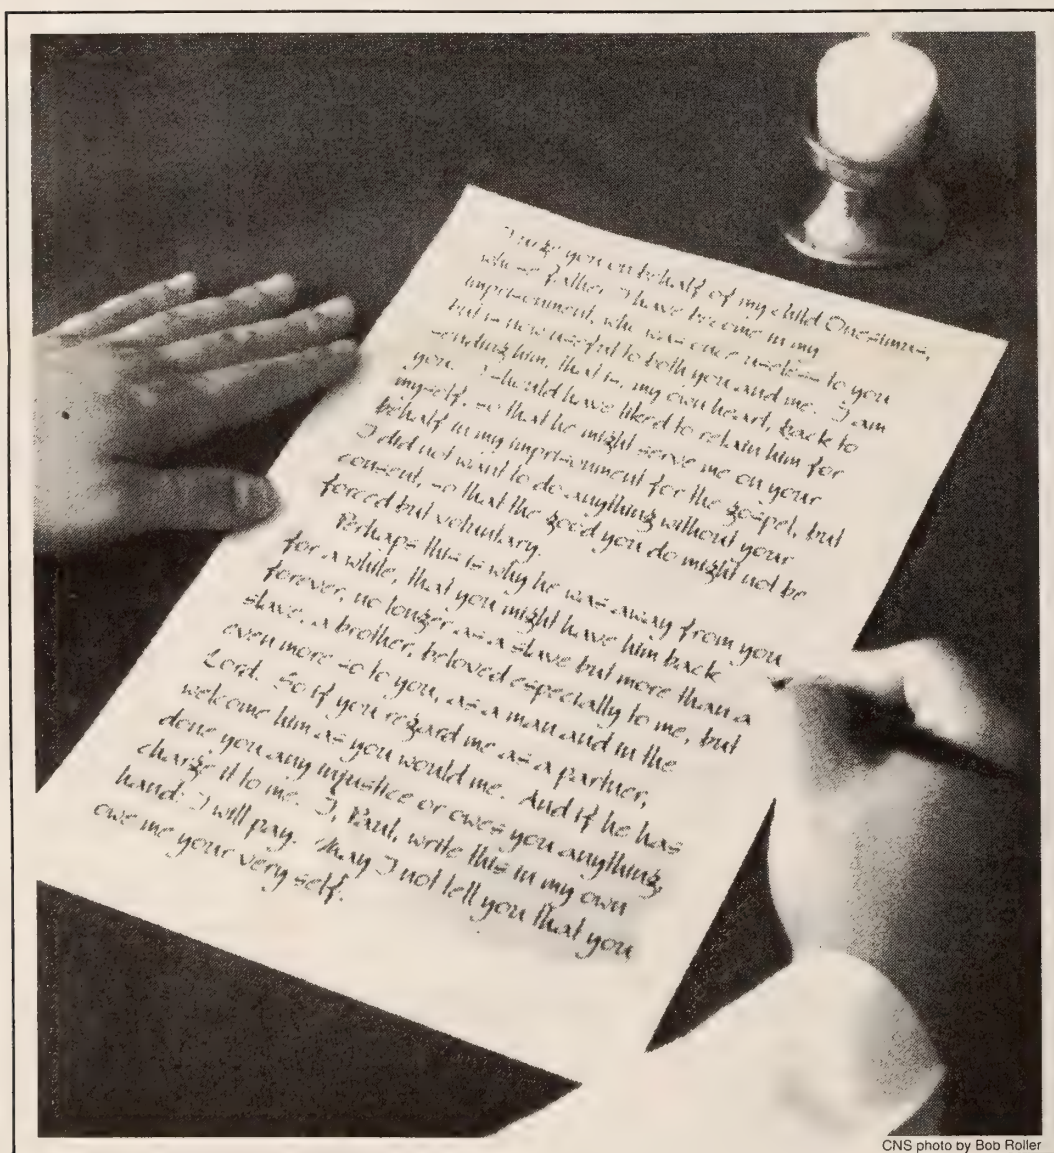 I urge you on behalf of my child Onesimus,
whose father I have become in my
imprisonment, who was once useless to you
but is now useful to both you and me. I am
sending him, that is, my own heart, back to
you. I should have liked to retain him for
myself, so that he might serve me on your
behalf in my imprisonment for the gospel, but
I did not want to do anything without your
consent, so that the good you do might not be
forced but voluntary.
Perhaps this is why he was away from you
for a while, that you might have him back
forever, no longer as a slave but more than a
slave, a brother, beloved especially to me, but
even more so to you, as a man and in the
Lord. So if you regard me as a partner,
welcome him as you would me. And if he has
done you any injustice or owes you anything,
charge it to me. I, Paul, write this in my own
hand: I will pay. May I not tell you that you
owe me your very self.
CNS photo by Bob Roller